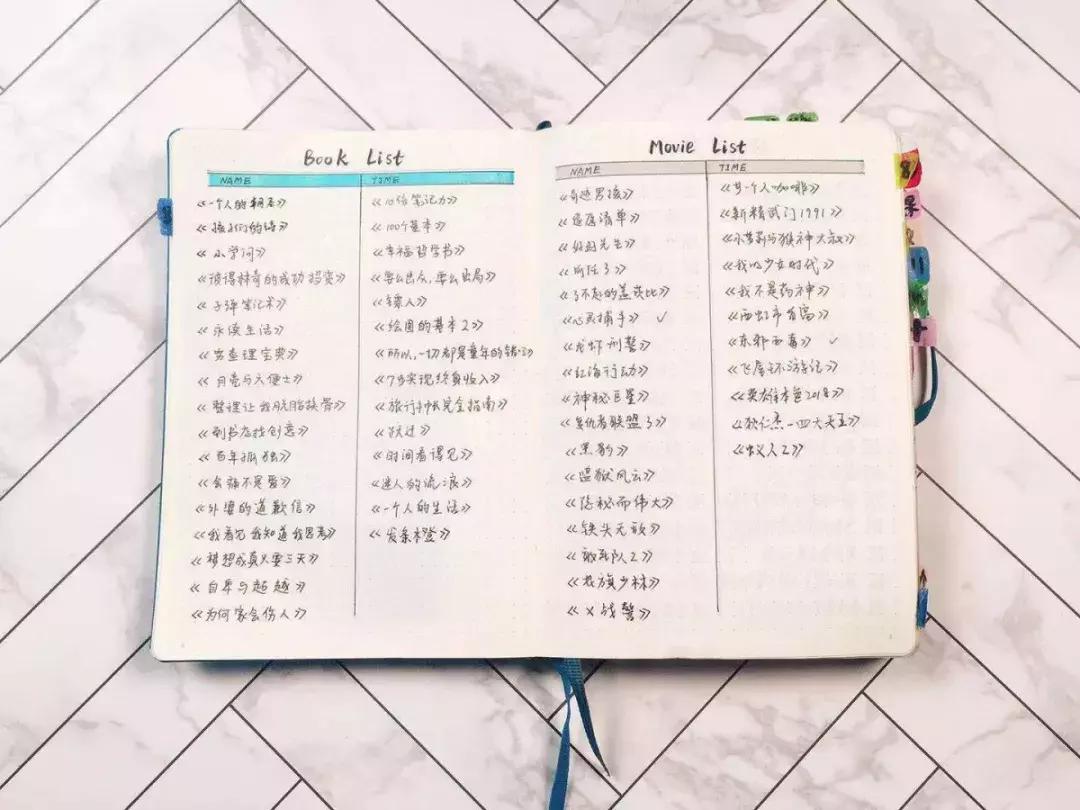 Book List
NAME TIME
《一个人的朝圣》
《孩子们的诗》
《小学问》
《彼得林奇的成功投资》
《子弹笔记术》
《永续生活》
《穷查理宝典》
《月亮与六便士》
《整理让我脱胎换骨》
《到书店找创意》
《百年孤独》
《会痛不是爱》
《外婆的道歉信》
《我看见 我知道 我思考》
《梦想成真只要三天》
《自卑与超越》
《为何家会伤人》
《10倍笔记力》
《100个基本》
《幸福哲学书》
《要么出众,要么出局》
《镖人》
《绘图的基本2》
《所以,一切都是童年的错》
《7步实现终身收入》
《旅行手帐完全指南》
《跃过》
《时间看得见》
《迷人的流浪》
《一个人的生活》
《发条橙》
Movie List
NAME TIME
《奇迹男孩》
《遗愿清单》
《好好先生》
《前任3》
《了不起的盖茨比》
《心灵捕手》 ✓
《龙虾刑警》
《红海行动》
《神秘巨星》
《复仇者联盟3》
《黑豹》
《监狱风云》
《隐秘而伟大》
《铁头无敌》
《敢死队2》
《龙旗少林》
《X战警》
《另一个人咖啡》
《新精武门1991》
《小萝莉与猴神大叔》
《我的少女时代》
《我不是药神》
《西虹市首富》
《东邪西毒》 ✓
《飞屋环游记》
《英雄本色2018》
《狄仁杰一四大天王》
《蚁人2》